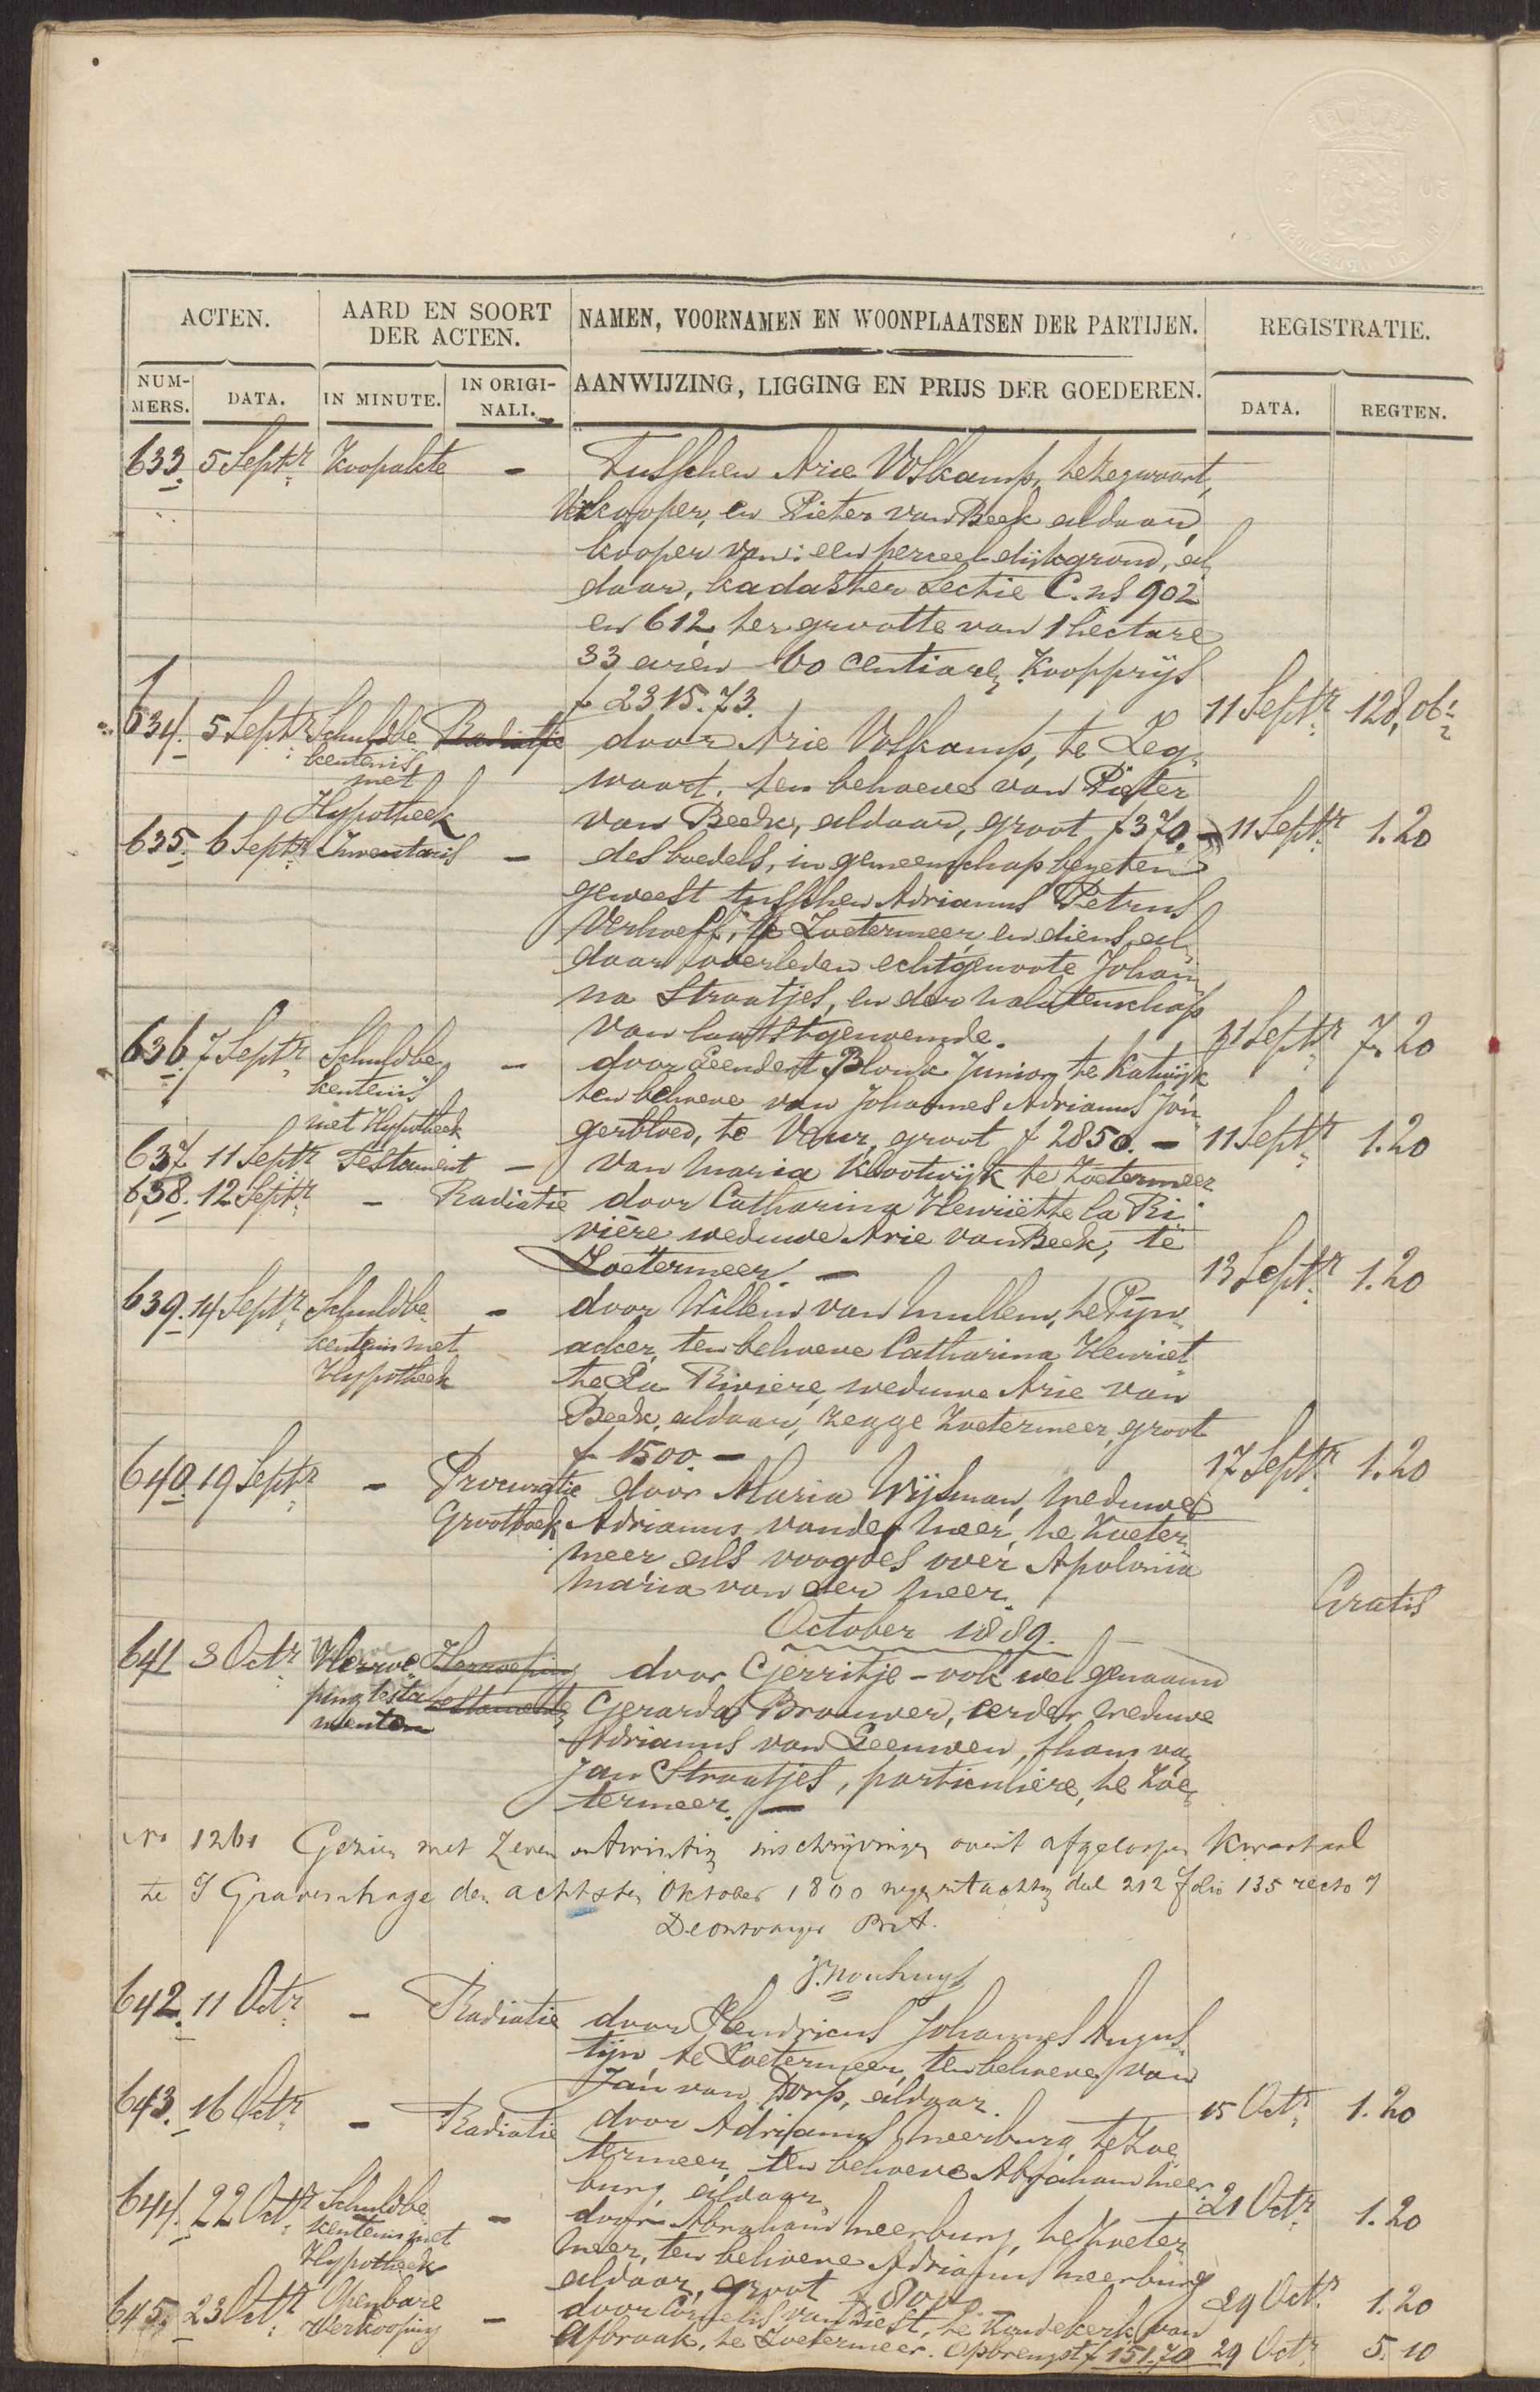 ACTEN.
AARD EN SOORT
DER ACTEN.
NAMEN, VOORNAMEN EN WOONPLAATSEN DER PARTIJEN.
REGISTRATIE.
NUM-
MERS.
DATA.
IN MINUTE.
IN ORIGI-
NALI.
AANWIJZING, LIGGING EN PRIJS DER GOEDEREN.
DATA.
REGTEN.
633. 5 Septr. Koopakte - Tusschen Arie Volkamp, te Zegwaart,
Verkooper, en Pieter van Beek aldaar,
kooper van: een perceel dijkgrond, al
daar, kadaster Sectie C. ns 902
en 612, ter grootte van 1 hectare
33 aren 60 centiare, Koopprijs
f 2315.73. 11 Septr. 128,06
634. 5 Septr. Schuldbe Radiatie door Arie Volkamp, te Zeg
kentenis
met waart. ten behoeve van Pieter
Hypotheek van Beek, aldaar, groot f 370.- 11 Septr. 1.20
635. 6 Septr. Inventaris - des boedels, in gemeenschap bezeten
geweest tusschen Adrianus Petrus
Verhoeff, te Zoetermeer, en diens al
daar overleden echtgenoote Johan
na Straatjes, en der nalatenschap
van laatstgenoemde. 11 Septr. 7.20
636. 7 Septr. Schuldbe - door Leendert Blonk Junior, te Katwijk
kentenis ten behoeve van Johannes Adrianus Jon
met Hypotheek gerbloed, te Veur, groot f 2850. - 11 Septr. 1.20
637. 11 Septr. Testament - van Maria Klootwijk te Zoetermeer
638. 12 Septr. - Radiatie door Catharina Henriëtte la Ri
vière weduwe Arie van Beek, te
Zoetermeer. - 13 Septr. 1.20
639. 14 Septr. Schuldbe - door Willem van Mullem, te Pijn
kentenis met acker, ten behoeve Catharina Henriet
Hypotheek te La Rivière, weduwe Arie van
Beek, aldaar, zegge Zoetermeer, groot
f 1500 - 17 Septr. 1.20
640. 19 Septr. - Procuratie door Maria Wijsman, weduwe
Grootboek Adrianus van der Meer, te Zoeter
meer, als voogdes over Apolonia
Maria van der Meer. Gratis
October 1889.
641 3 Octr. Herroe Herroeping door Gerritje - ook wel genaamd
ping testa testamente Gerarda Brouwer, eerder weduwe
menten Adrianus van Leeuwen, thans van
Jan Straatjes, particuliere, te Zoe
termeer. -
No 1261 Gezien met Zeven en twintig inschrijvingen over 't afgeloopen Kwartaal
te S Gravenhage den achtsten Oktober 1800 negen en tachtig deel 212 folio 135 recto
De ontvanger
642. 11 Octr. - Radiatie door Hendricus Johannes Augus
tijn, te Zoetermeer, ten behoeve van
Jan van Dorp, aldaar. 15 Octr. 1.20
643. 16 Octr. - Radiatie door Adrianus Meerburg, te Zoe
termeer, ten behoeve Abraham Meer
burg, aldaar. 21 Octr. 1.20
644. 22 Octr. Schuldbe - door Abraham Meerburg, te Zoeter
kentenis met meer, ten behoeve Adrianus Meerburg
Hypotheek aldaar, groot f 800 29 Octr. 1.20
645. 23 Octr. Openbare - door Cornelis van Diest, te Koudekerk, van
Verkooping afbraak, te Zoetermeer. Opbrengst f 151.70 29 Octr. 5.10